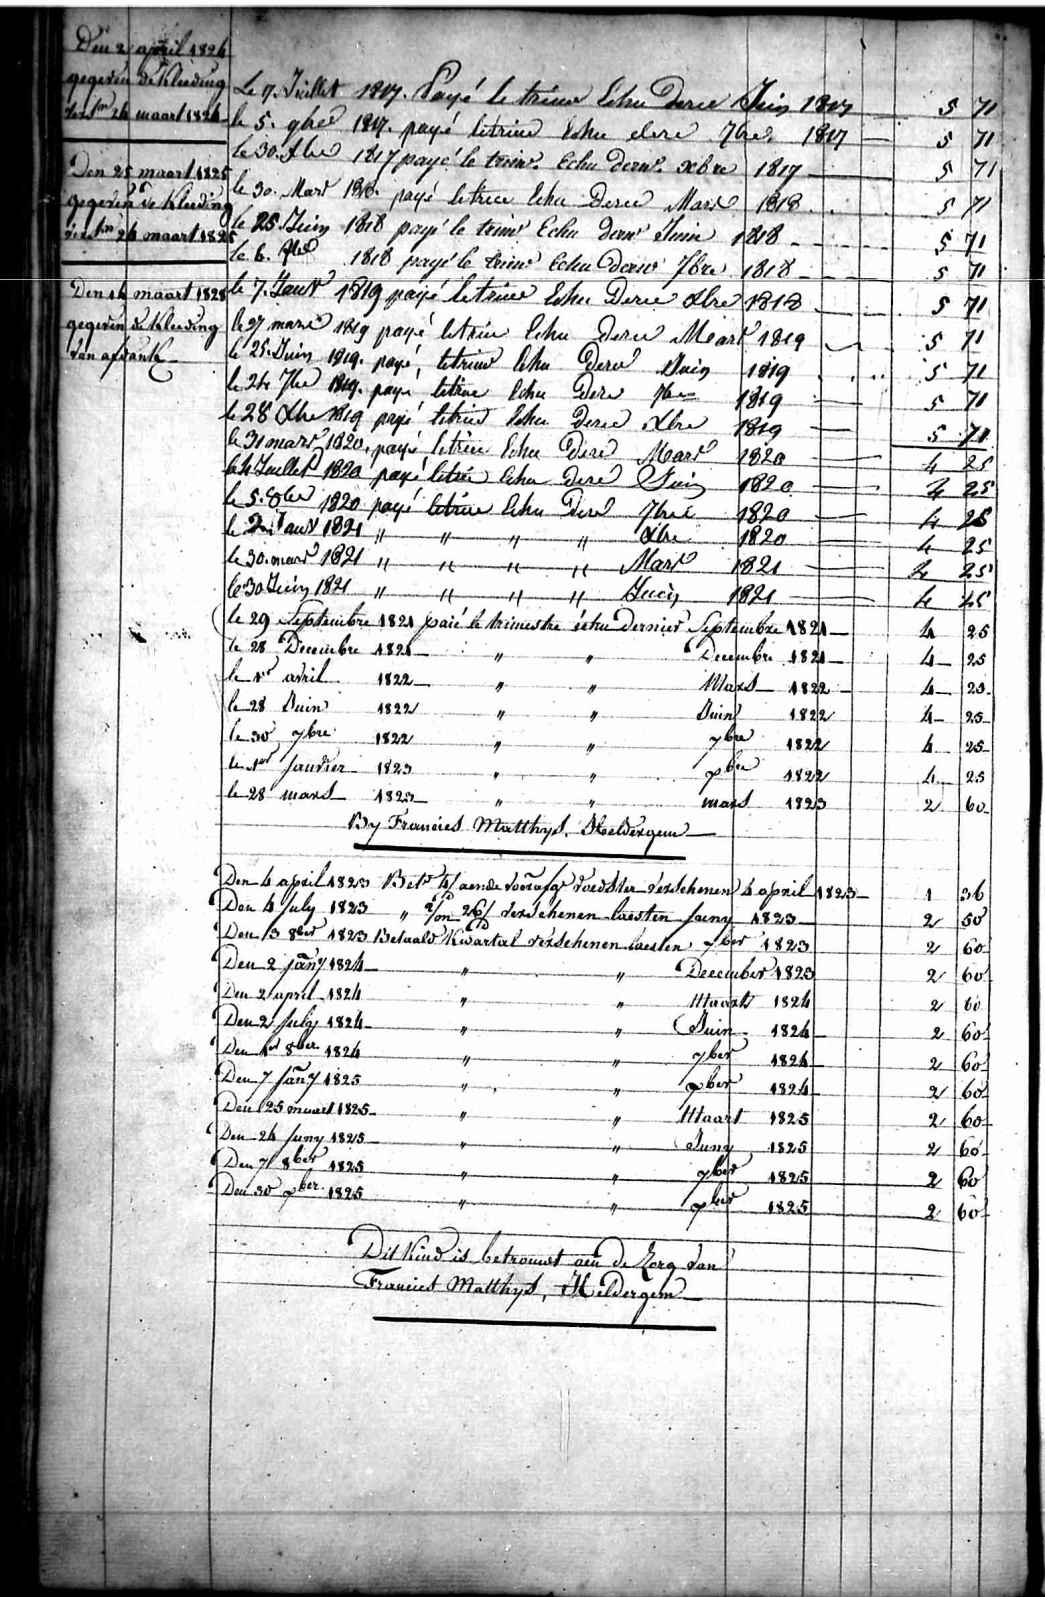 Den 2 april 1824
gegeven de Kleeding
24 maart 1824
Den 25 maart 1825
gegeven de Kleeding
24 maart 1825
Den 14 maart 1828
gegeven de Kleeding
van afdank
Le 7. Juillet 1817. Payé le trime Echu Dere Juin 1817 5 71
le 5. 9bre 1817. payé le trime Echu dere 7bre 1817 5 71
le 30. Xbre 1817 payé le trimr. Echu dernr. xbre 1817 5 71
le 30. Mars 1818. payé le trime Echu Dere Mars 1818 5 71
le 25. Juin 1818 payé le trimr Echu dernr Juin 1818 5 71
le 6. 1818 payé le trimr Echu dernr 7bre 1818 5 71
le 7. Janvr 1819 payé le trime Echu Dere Xbre 1818 5 71
le 27 mars 1819 payé le trim Echu Dere Mars 1819 5 71
le 25. Juin 1819. payé, le trime Echu Dere Juin 1819 5 71
le 24 7bre 1819. payé le trime Echu Dere 7bre 1819 5 71
le 28 Xbre 1819 payé le trim Echu Dere Xbre 1819 5 71
le 31 mars 1820, payé le trim Echu Dere Mars 1820 4 25
le 4 Juillet 1820 payé le trim Echu Dere Juin 1820 4 25
le 5. 8bre 1820 payé le trime Echu Dere 7bre 1820 4 25
le 2. Janvr 1821 " " " " Xbre 1820 4 25
le 30. mars 1821 " " " " Mars 1821 4 25
le 30 Juin 1821 " " " " Juin 1821 4 25
le 29 Septembre 1821 paié le trimestre échu dernier Septembre 1821 4 25
le 28 Decembre 1821 " " Decembre 1821 4 25
le 1er avril 1822 " " Mars 1822 4 25
le 28 Juin 1822 " " Juin 1822 4 25
le 30 7bre 1822 " " 7bre 1822 4 25
le 1er janvier 1823 " " xbre 1822 4 25
le 28 mars 1823 " " mars 1823 2 60
By Francies Matthys, Heldergem
Den 4 april 1823 voedster verschenen 4 april 1823 1 36
Den 4 july 1823 " verschenen laesten juny 1823 2 50
Den 13 8ber 1823 Betaald Kwartael verschenen laesten 7ber 1823 2 60
Den 2 jany 1824 " " December 1823 2 60
Den 2 april 1824 " " Maart 1824 2 60
Den 2 july 1824 " " Juin 1824 2 60
Den 1er 8ber 1824 " " 7ber 1824 2 60
Den 7 jany 1825 " " xber 1824 2 60
Den 25 maart 1825 " " Maart 1825 2 60
Den 24 juny 1825 " " Juny 1825 2 60
Den 7 8ber 1825 " " 7ber 1825 2 60
Den 30 xber 1825 " " xber 1825 2 60
Dit kind is betrouwt aen de zorg van
Francies Matthys, Heldergem